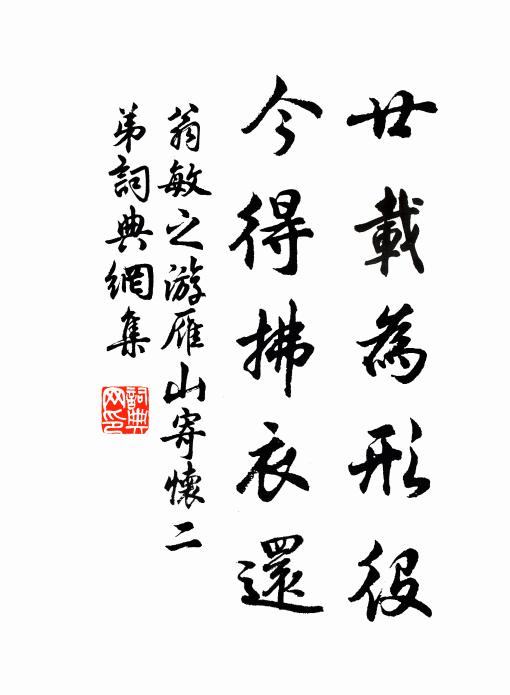 廿載為形役
今得拂衣還
翁敏之游雁山寄懷二
弟詞典網集
詞典
网印